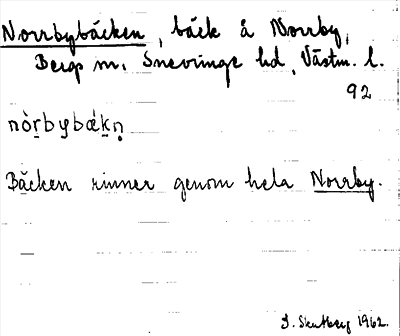 Norrbybäcken, bäck å Norrby,
Bergs sn, Snevringe hd, Västm. l.
92
nòṟbybǽḵn̥
Bäcken rinner genom hela Norrby.
1962.